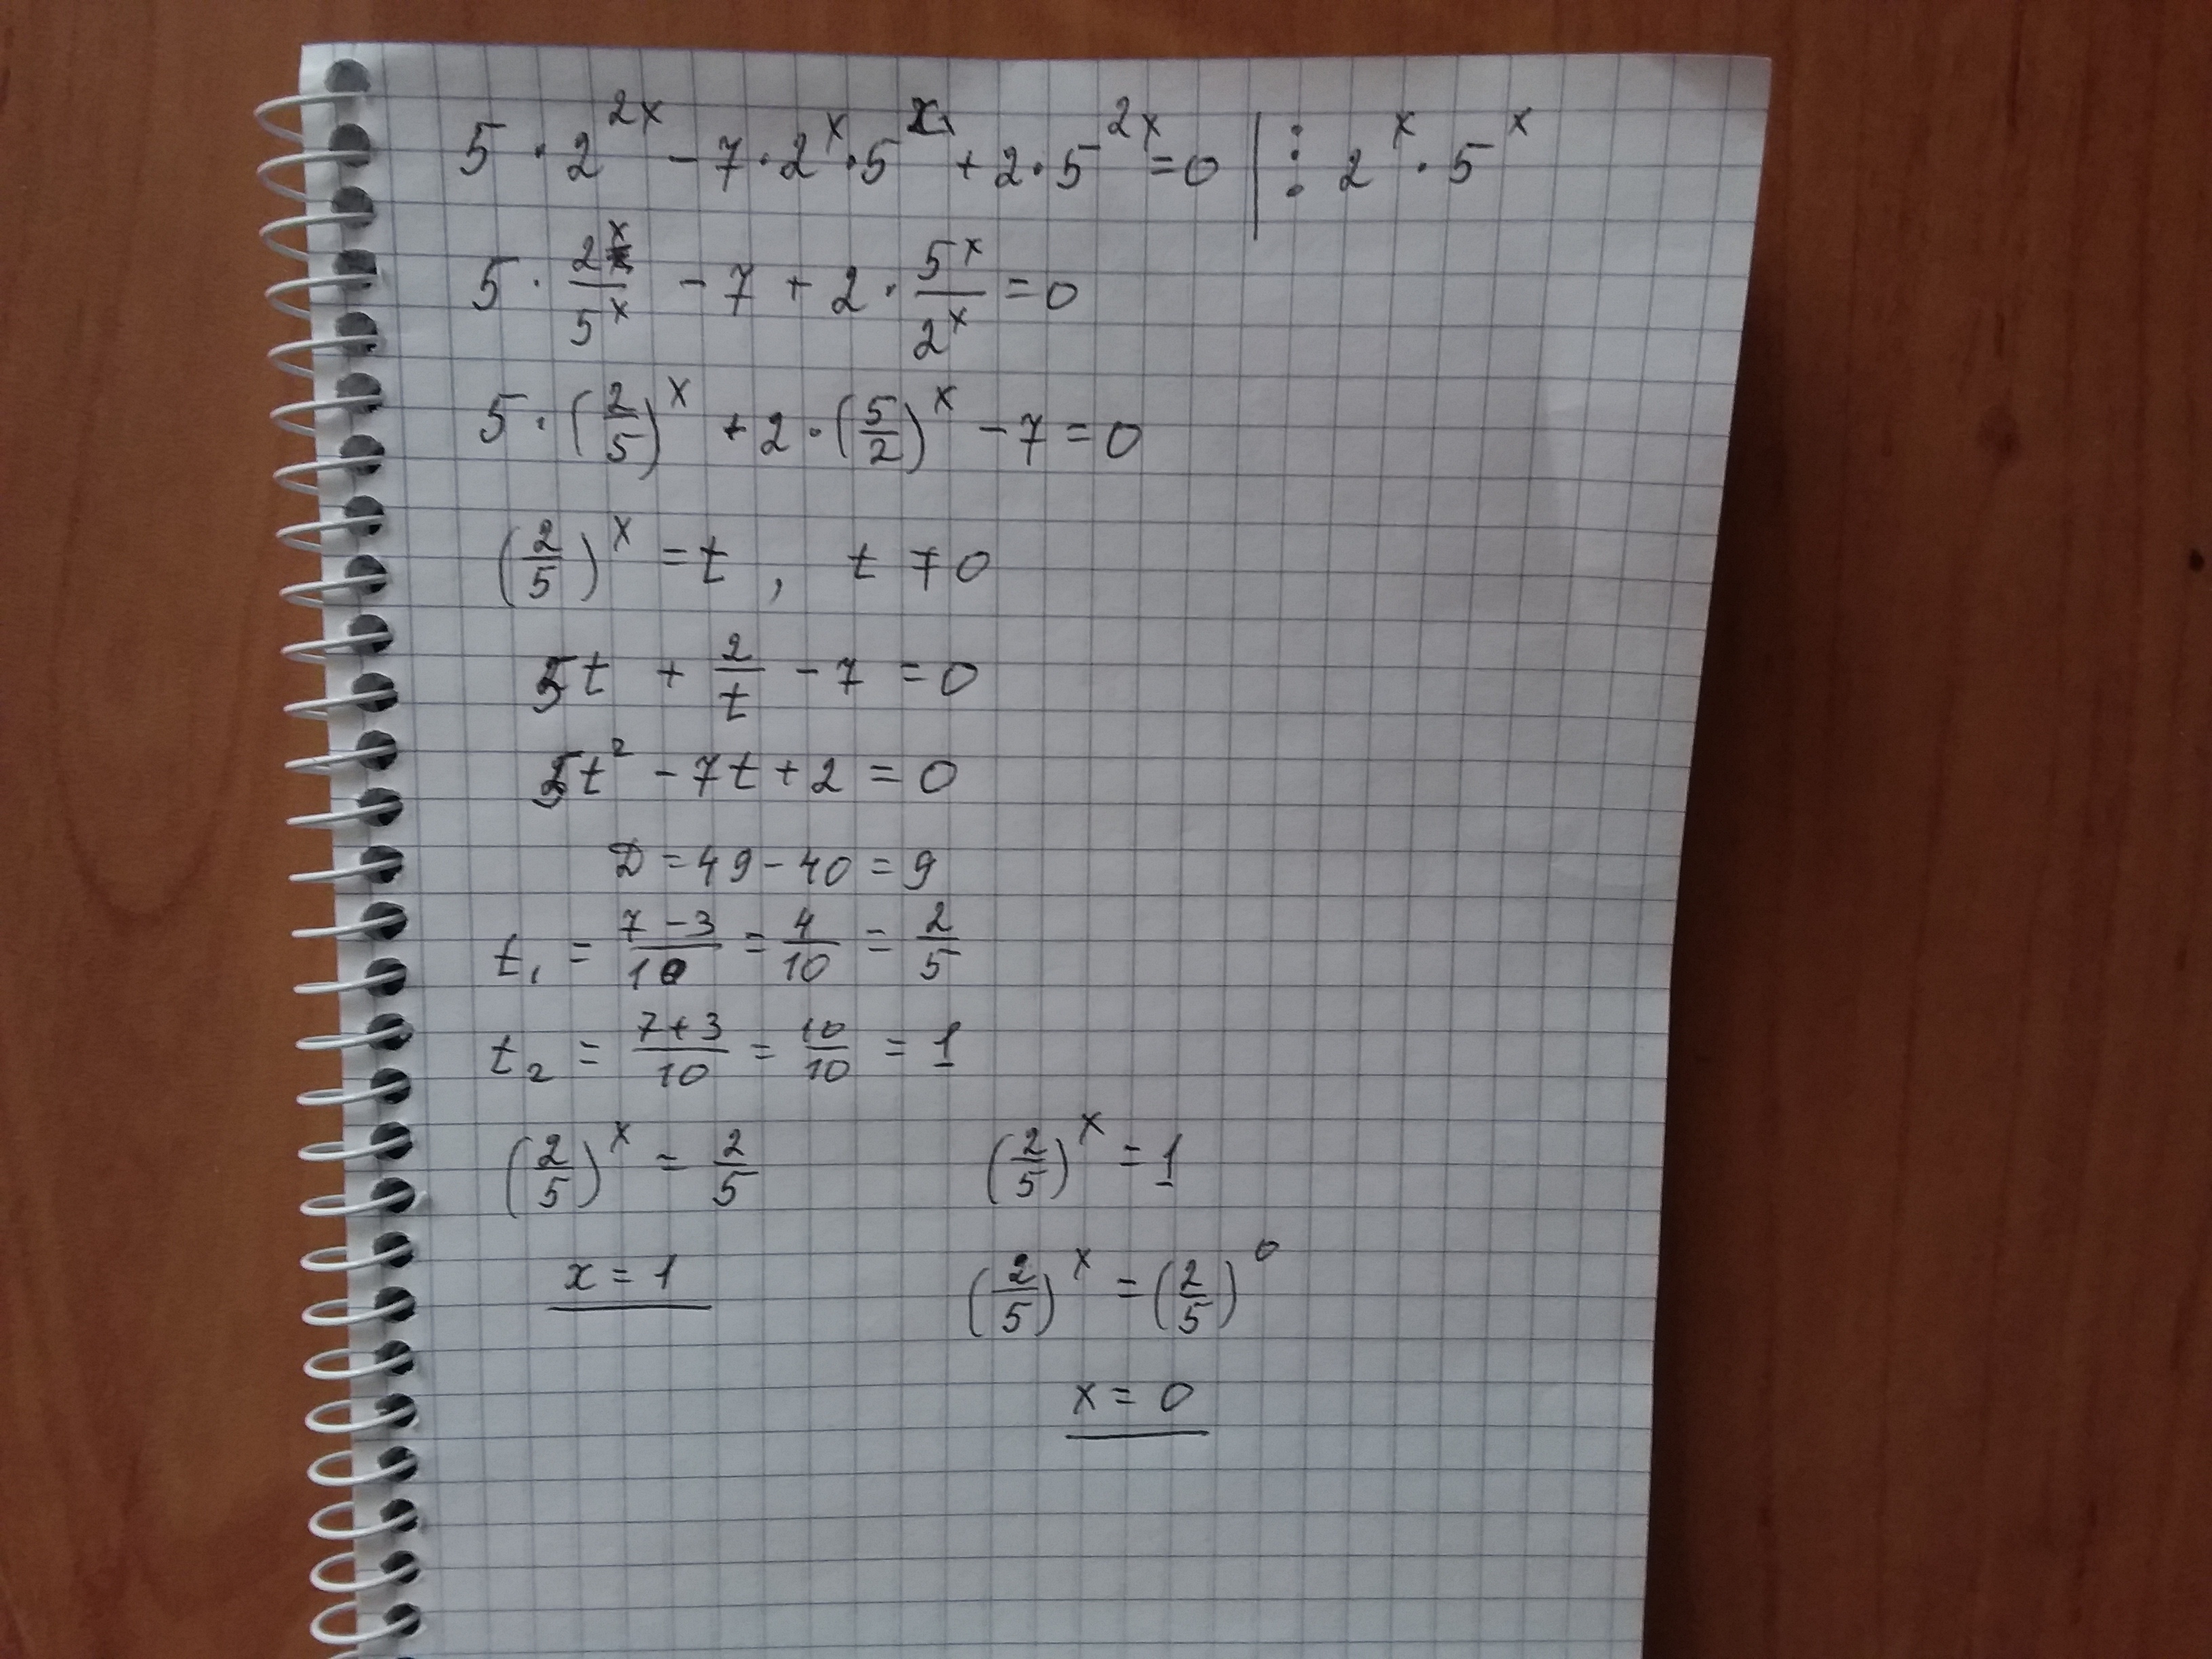 5 · 2^{2x} - 7 · 2^x · 5^x + 2 · 5^{2x} = 0 | : 2^x · 5^x
5 · \frac{2^x}{5^x} - 7 + 2 · \frac{5^x}{2^x} = 0
5 · (\frac{2}{5})^x + 2 · (\frac{5}{2})^x - 7 = 0
(\frac{2}{5})^x = t , t ≠ 0
5t + \frac{2}{t} - 7 = 0
5t^2 - 7t + 2 = 0
D = 49 - 40 = 9
t_1 = \frac{7-3}{10} = \frac{4}{10} = \frac{2}{5}
t_2 = \frac{7+3}{10} = \frac{10}{10} = 1
(\frac{2}{5})^x = \frac{2}{5} (\frac{2}{5})^x = 1
x = 1 (\frac{2}{5})^x = (\frac{2}{5})^0
x = 0